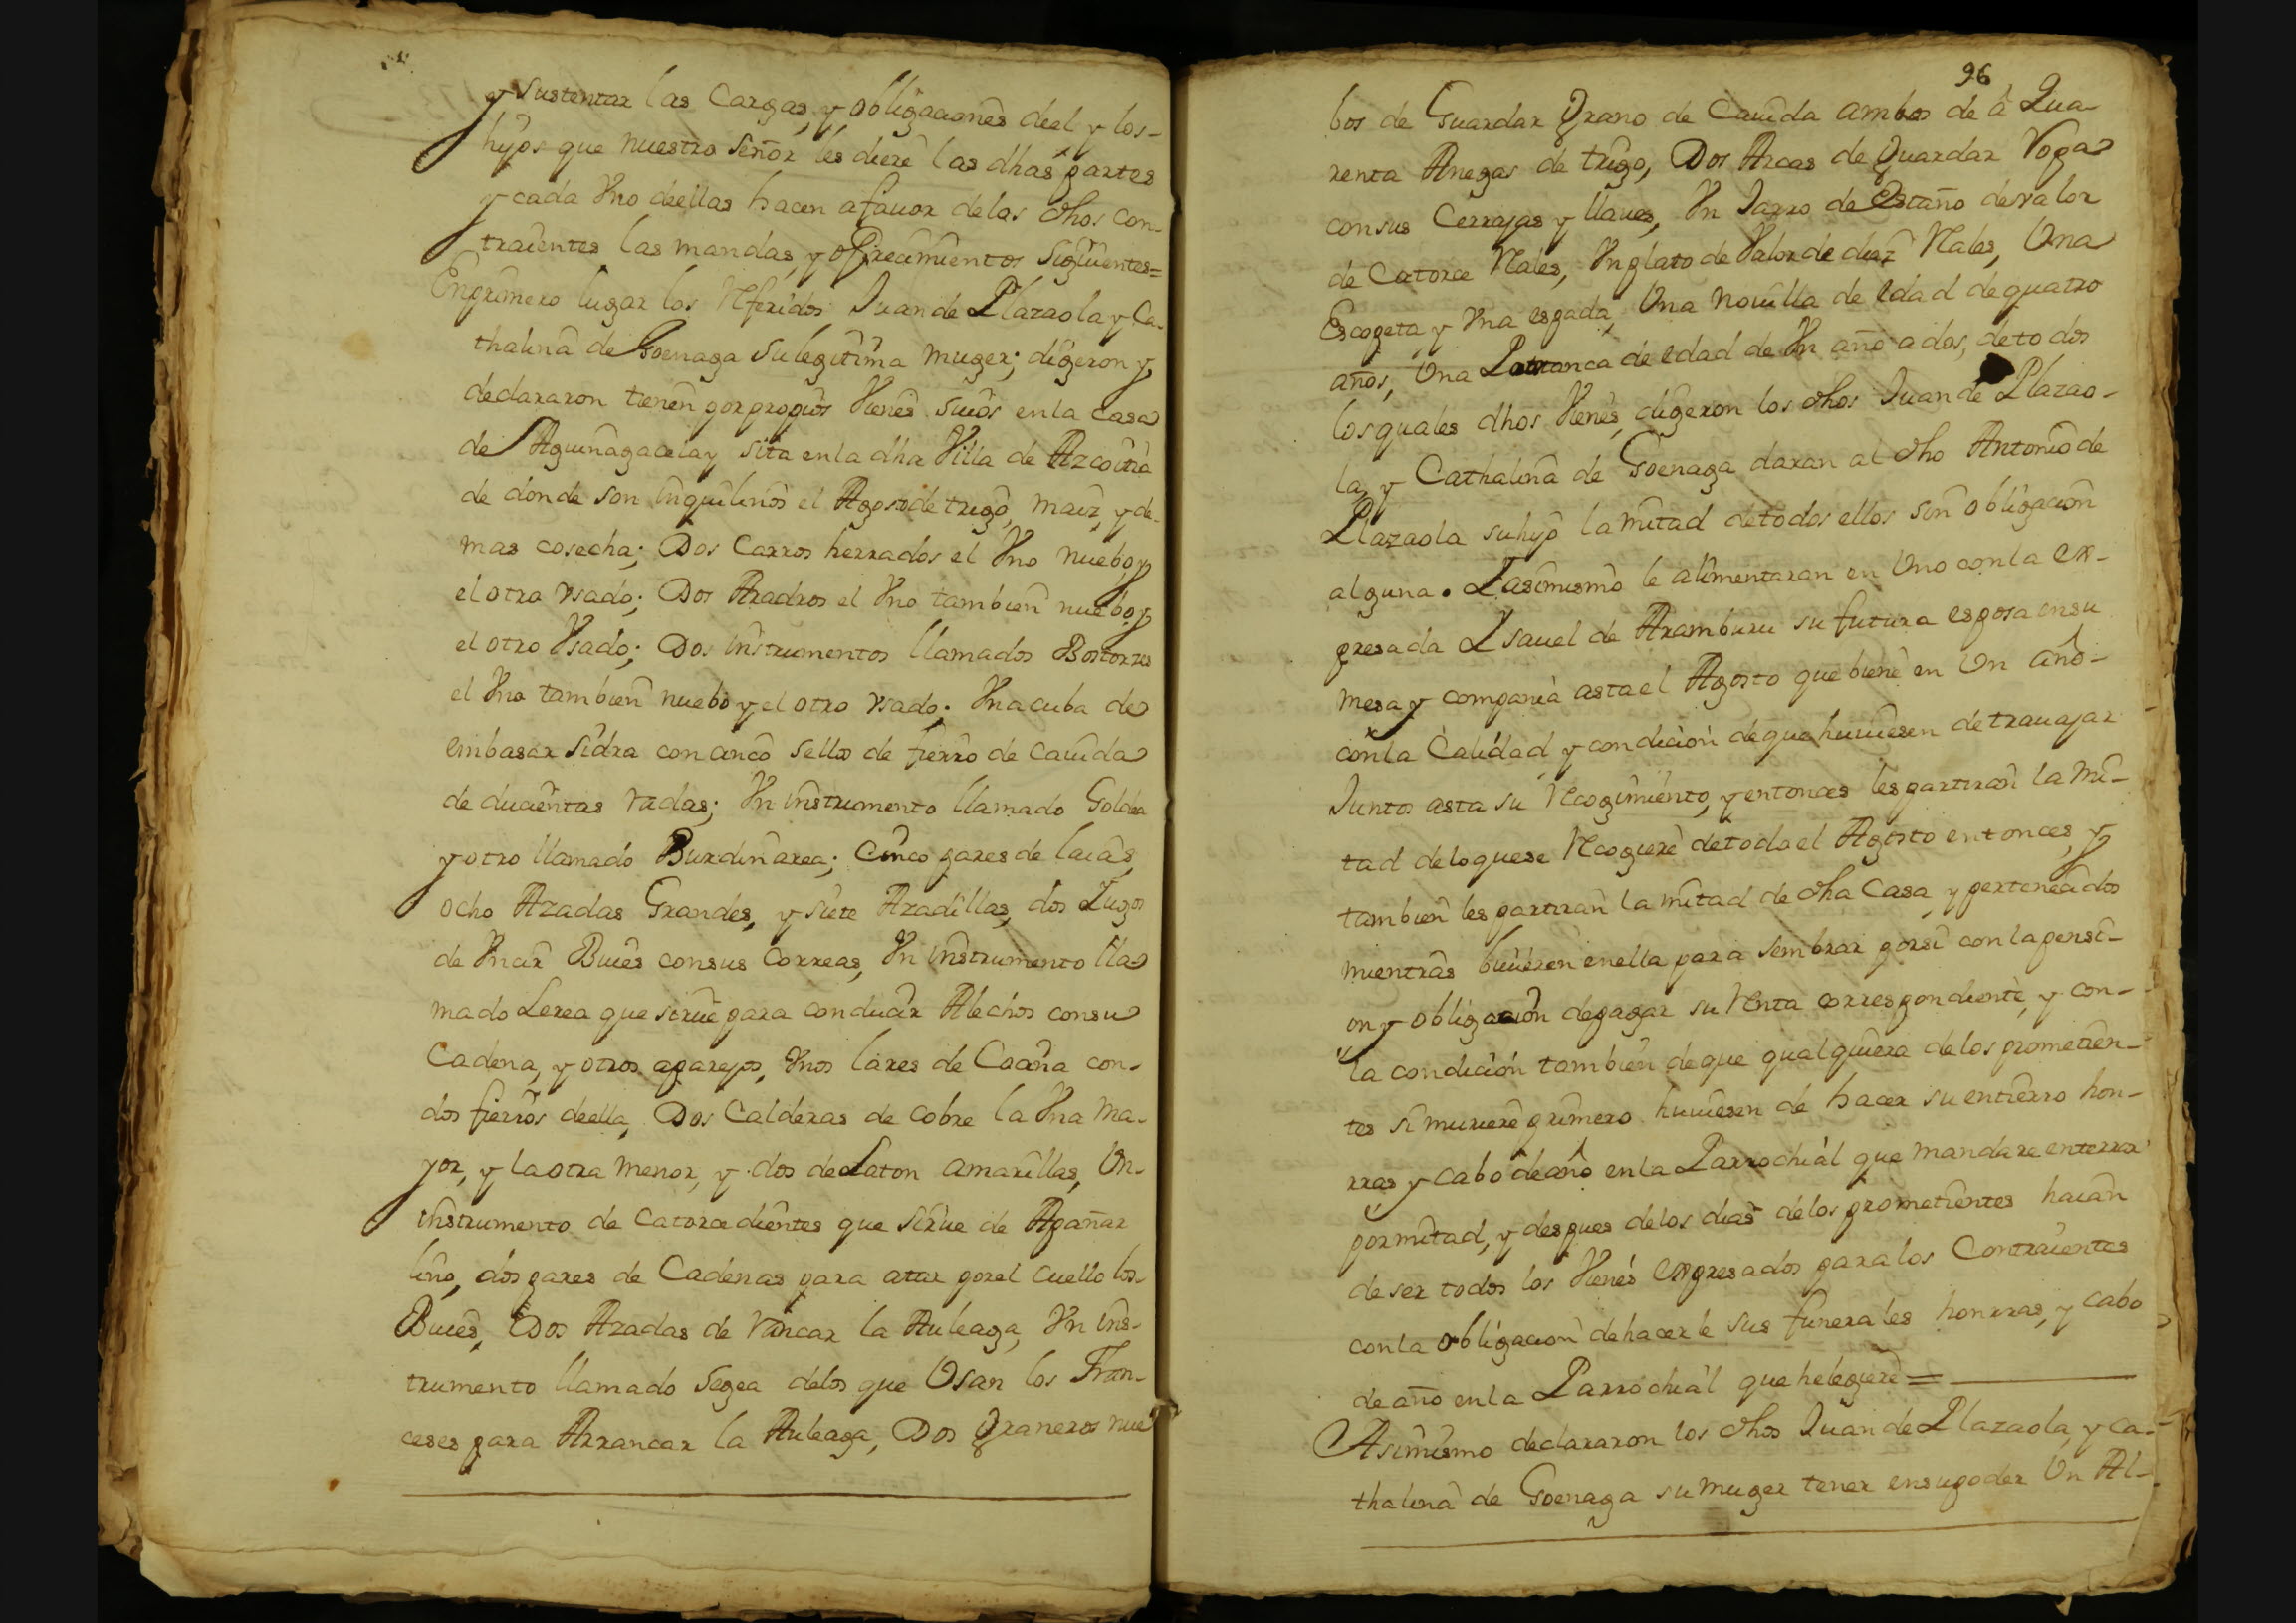 y sustentar las Cargas, y obligaciones deel y los-
hijos que nuestro Señor les diere las dhas partes
y cada Vno deellas hacen a fauor delos dhos con-
traientes las mandas, y ofrecimientos Siguientes=
En primero lugar los Rferidos Juan de Plazaola y Ca-
thalina de Goenaga su legitima muger; digeron y
declararon tienen por propios Vienes suios en la casa
de Aguinagacelay sita en la dha Villa de Azcoitia
de donde son inquilinos el Agosto de trigo, maiz, y de-
mas cosecha; Dos Carros herrados el Vno nuebo, y
el otro Vsado; Dos Aradros el Vno tambien nuebo, y
el otro Vsado; Dos instrumentos llamados Bostortzes
el Vno tambien nuebo y el otro Vsado; Vna cuba de
embasar sidra con cinco sellos de fierro de cauida
de ducientas Vadas; Vn instrumento llamado Goldea
y otro llamado Burdinarea; Cinco pares de laias,
ocho Azadas Grandes, y siete Azadillas, dos Zugos
de Vncir Buies con sus Correas, Vn instrumento lla
mado Lerea que sirue para conducir Alechos con su
Cadena, y otros aparejos, Vnos lares de Cocina con-
dos fierros deella, Dos Calderas de cobre la Vna ma-
yor, y la otra menor, y dos de Laton amarillas, Vn-
instrumento de catorce dientes que sirue de Apañar
lino, dos pares de Cadenas para atar por el cuello los-
Buies, Dos Azadas de Rancar la Auleaga, Vn ins-
trumento llamado Segea delos que Vsan los Fran-
ceses para Arrancar la Auleaga, Dos Graneros nue
96
bos de Guardar Grano de Cauida ambos de à Qua-
renta Anegas de trigo, Dos Arcas de Guardar Ropa
con sus Cerrajas y llaues, Vn Jarro de Estaño de valor
de Catorce Rales, Vn plato de Valor de diez Rales, Vna
Escopeta, y Vna espada, Vna nouilla de edad de quatro
años, Vna Potranca de edad de Vn año a dos, de todos
los quales dhos Vienes, digeron los dhos Juan de Plazao-
la, y Cathalina de Goenaga daran al dho Antonio de
Plazaola su hijo la mitad de todos ellos sin obligacion
alguna. Y asimismo le alimentaran en Vno con la ex-
presada Ysauel de Aramburu su futura esposa en su
mesa y compania asta el Agosto que biene en Vn año-
con la Calidad, y condicion de que huuiesen de trauajar
Juntos asta su Rcogimiento, y entonces les partiran la mi-
tad delo que se Rcogiere de todo el Agosto entonces, y
tambien les partiran la mitad de dha Casa, y pertenecidos
mientras biuieren en ella para sembrar por si con la pensi-
on y obligacion de pagar su Renta correspondiente, y con-
la condicion tambien de que qualquiera delos prometien-
tes si muriere primero huuiesen de hacer su entierro hon-
rras y cabo de año en la Parrochial que mandare enterrar
por mitad, y despues delos dias delos prometientes haian
de ser todos los Vienes expresados para los Contraientes
con la obligacion de hacerle sus funerales honrras, y cabo
de año en la Parrochial que helegiere=
Asimismo declararon los dhos Juan de Plazaola, y Ca-
thalina de Goenaga su muger tener en su poder Vn Al-